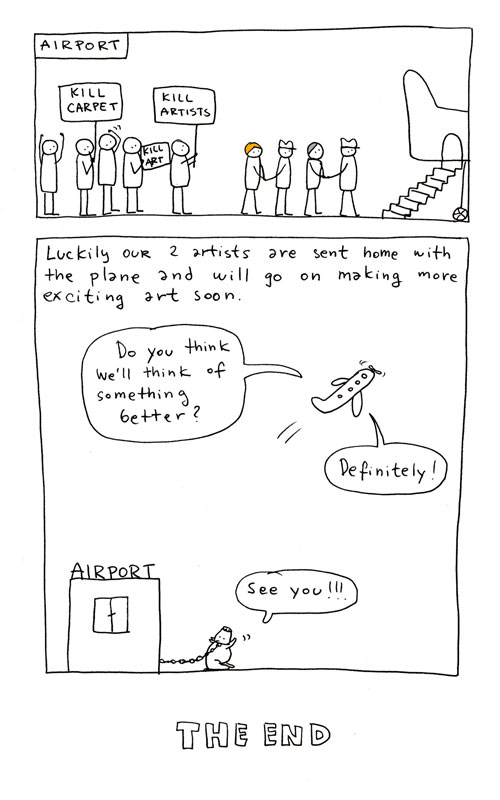 AIRPORT
KILL
CARPET
KILL
ARTISTS
KILL
ART
Luckily our 2 artists are sent home with
the plane and will go on making more
exciting art soon.
Do you think
we'll think of
something
better?
Definitely!
AIRPORT
See you!!!
THE END